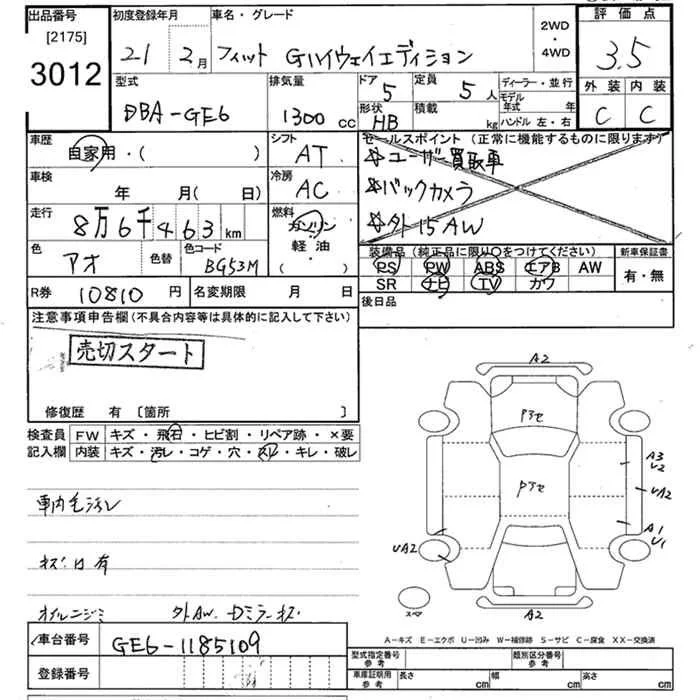 出品番号
[2175]
3012
初度登録年月
21 2月
車名・グレード
フィット Gハイウェイエディション
2WD
・
4WD
評価点
3.5
外装 内装
C C
型式
DBA-GE6
排気量
1300 cc
ドア
5
定員
5人
形状
HB
積載
kg
ディーラー・並行
モデル年式 年
ハンドル 左・右
車歴
自家用・( )
シフト
AT
セールスポイント(正常に機能するものに限ります)
☆ユーザー買取車
☆バックカメラ
☆外15AW
車検
年 月( 日)
冷房
AC
走行
8万6千463km
燃料
ガソリン
軽油
( )
色
アオ
色替
色コード
BG53M
装備品(純正品に限り○をつけてください)
PS PW ABS エアB AW
SR ナビ TV カワ
新車保証書
有・無
R券 10810円
名変期限 月 日
後日品
注意事項申告欄(不具合内容等は具体的に記入して下さい)
売切スタート
修復歴 有 [箇所 ]
検査員
記入欄
FW キズ・飛石・ヒビ割・リペア跡・×要
内装 キズ・汚レ・コゲ・穴・スレ・キレ・破レ
車内毛汚レ
キズ凹有
オイルニジミ 外AW・Dミラーキズ
A2
Pアセ
Pアセ
A3
U2
UA2
A1
U1
UA2
A2
スペア
A-キズ E-エクボ U-凹み W-補修跡 S-サビ C-腐食 XX-交換済
車台番号
GE6-1185109
登録番号
型式指定番号
参考
類別区分番号
参考
車庫証明用
参考
長さ cm
幅 cm
高さ cm